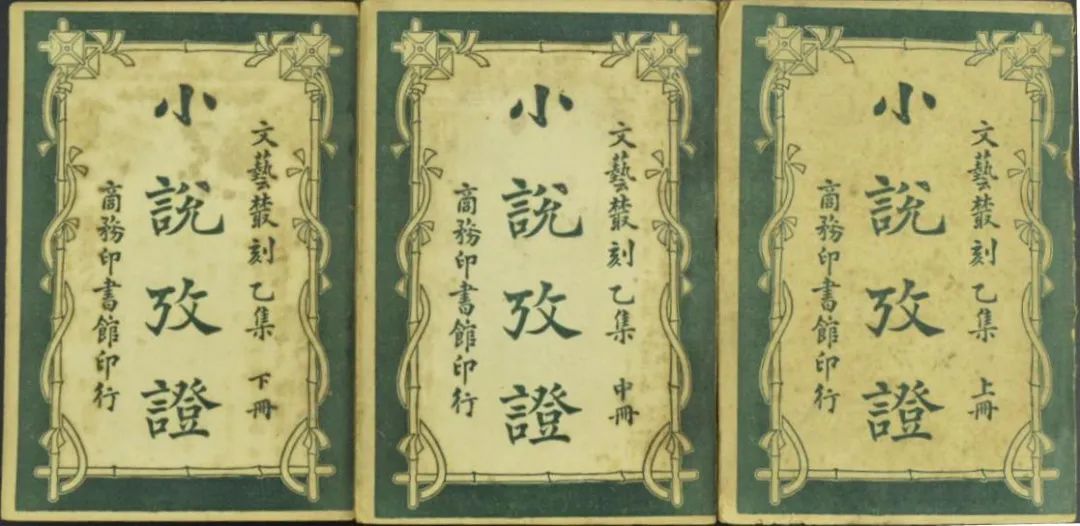 文藝叢刻 乙集 上冊
小說攷證
商務印書館印行
文藝叢刻 乙集 中冊
小說攷證
商務印書館印行
文藝叢刻 乙集 下冊
小說攷證
商務印書館印行